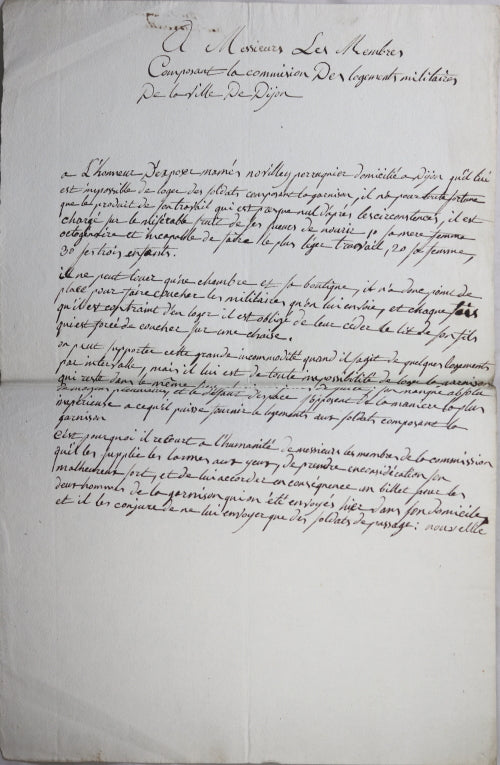 A Messieurs Les Membres
Composant la commission Des logements militaires
De la ville De Dijon
a L'honneur D'exposer mamés novilley perruquier domicilié a Dijon qu'il lui
est impossible de loger des soldats composant la garnison, il n'a pour toute fortune
que le produit de son travail qui est presque nul d'après les circonstances, il est
chargé sur le misérable fruit de ses sueurs de nourir, 1o sa mere femme
octogénaire et incapable de faire le plus leger travail, 2o sa femme,
3o ses trois enfants.
il ne peut louer qu'une chambre et sa boutique, il n'a point de
place pour faire coucher les militaires qu'on lui envoie, et chaque fois
qu'il est contraint d'en loger il est obligé de leur céder le lit de son fils
qui est forcé de coucher sur une chaise.
on peut supporter cette grande incommodité quand il s'agit de quelques logements
par intervalle, mais il lui est de toute impossibilité de loger la garnison
qui reste dans le même son manque absolu
de moyens pécuniaires, et le défaut d'espace s'opposent de la maniere la plus
impérieuse a ce qu'il puisse fournir le logement aux soldats composant la
garnison
c'est pourquoi il recourt a l'humanité de messieurs les membres de la commission
qu'il les supplie les larmes aux yeux, de prendre en considération son
malheureux sort, et de lui accorder en conséquence un billet pour les
deux hommes de la garnison qui ont été envoyés hier dans son domicile,
et il les conjure de ne lui envoyer que des soldats de passage: